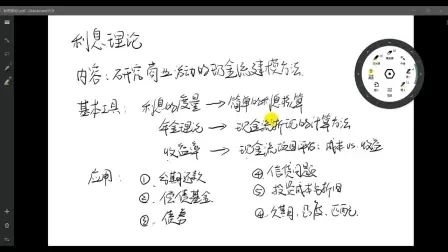 利息理论
内容：研究商业活动的现金流建模方法
基本工具：利息的度量 → 简单的利息换算
年金理论 → 现金流折现的计算方法
收益率 → 现金流项目评估：成本 vs. 收益
应用：① 分期还款 ④ 信贷问题
② 偿债基金 ⑤ 投资成本与折旧
③ 债券 ⑥ 久期、凸度、匹配